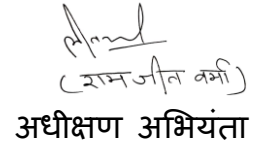 (रामजीत वर्मा)
अधीक्षण अभियंता